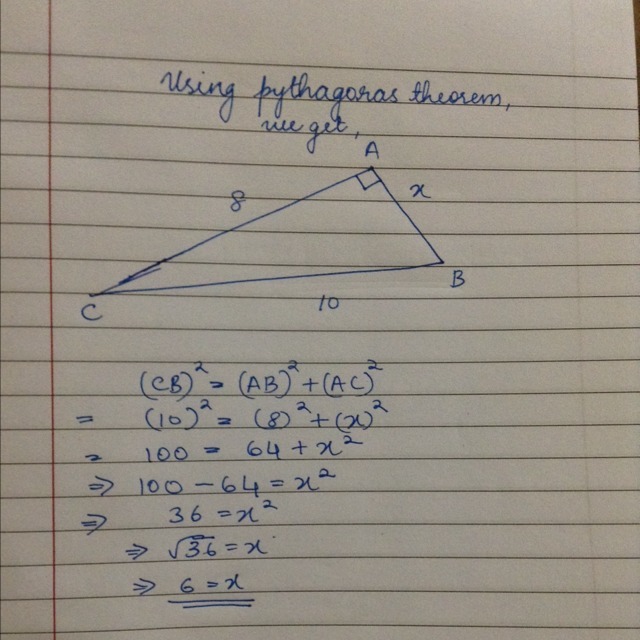 Using pythagoras theorem,
we get,
A
8
x
B
10
C
(CB)² = (AB)² + (AC)²
= (10)² = (8)² + (x)²
= 100 = 64 + x²
⇒ 100 - 64 = x²
⇒ 36 = x²
⇒ √36 = x
⇒ 6 = x